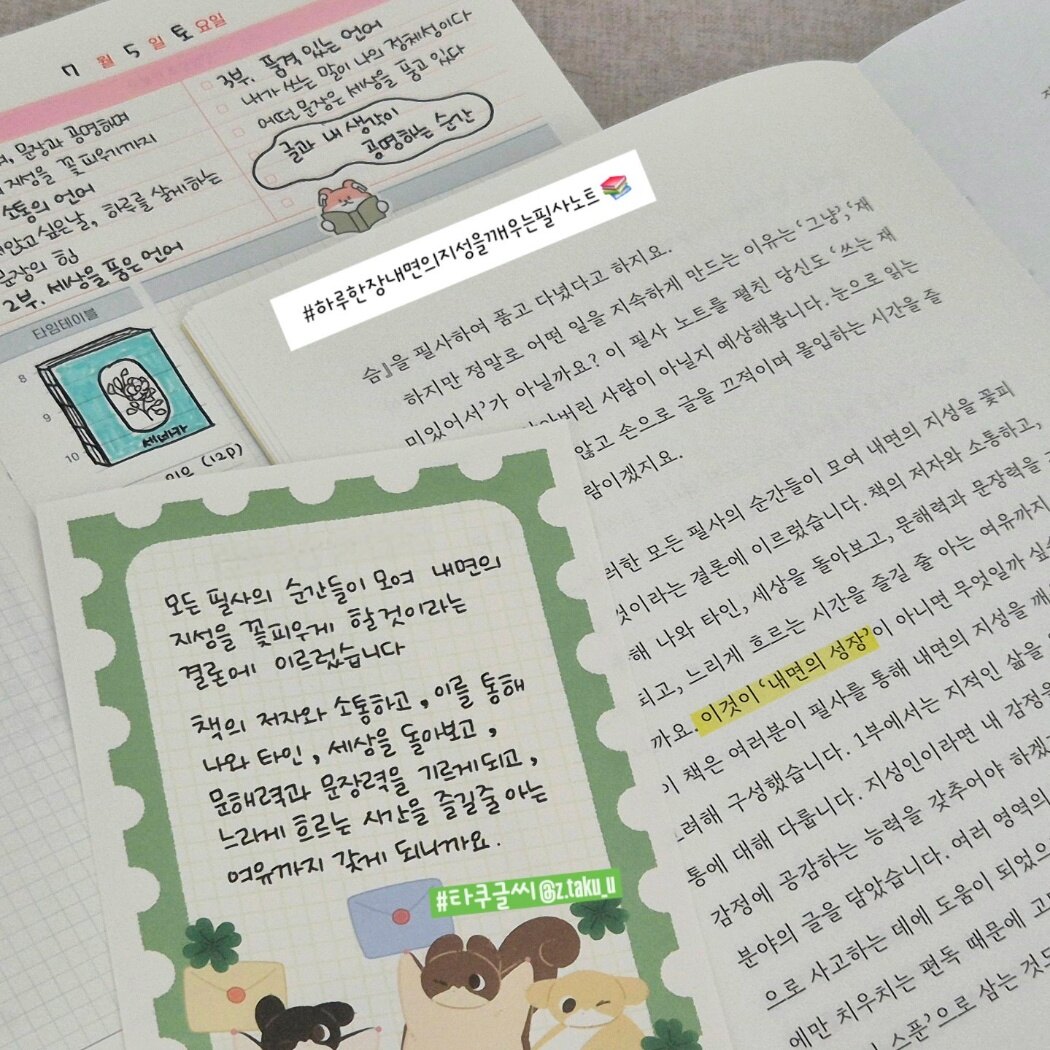 7 월 5 일 토 요일
문장과 공명하며
지성을 꽃 피우기까지
소통의 언어
않고 싶은날, 하루를 살게 하는
문장의 힘
2부. 세상을 품은 언어
3부. 품격 있는 언어
내가 쓰는 말이 나의 정체성이다
어떤 문장은 세상을 품고 있다
글과 내 생각이
공명하는 순간
타임테이블
8
9
10
세네카
(12p)
#하루한장내면의지성을깨우는필사노트📚
슴』을 필사하여 품고 다녔다고 하지요.
하지만 정말로 어떤 일을 지속하게 만드는 이유는 ‘그냥’, ‘재
미있어서’가 아닐까요? 이 필사 노트를 펼친 당신도 ‘쓰는 재
아버린 사람이 아닐지 예상해봅니다. 눈으로 읽는
않고 손으로 글을 끄적이며 몰입하는 시간을 즐
람이겠지요.
러한 모든 필사의 순간들이 모여 내면의 지성을 꽃피
것이라는 결론에 이르렀습니다. 책의 저자와 소통하고,
해 나와 타인, 세상을 돌아보고, 문해력과 문장력을
되고, 느리게 흐르는 시간을 즐길 줄 아는 여유까지
까요. 이것이 ‘내면의 성장’이 아니면 무엇일까
이 책은 여러분이 필사를 통해 내면의 지성을
려해 구성했습니다. 1부에서는 지적인 삶을
통에 대해 다룹니다. 지성인이라면 내 감정을
감정에 공감하는 능력을 갖추어야
분야의 글을 담았습니다. 여러 영역의
으로 사고하는 데에 도움이 되었으
에만 치우치는 편독 때문에
스푼’으로 삼는 것도
모든 필사의 순간들이 모여 내면의
지성을 꽃피우게 할것이라는
결론에 이르렀습니다
책의 저자와 소통하고, 이를 통해
나와 타인, 세상을 돌아보고,
문해력과 문장력을 기르게되고,
느리게 흐르는 시간을 즐길줄 아는
여유까지 갖게 되니까요.
#타쿠글씨@z.taku_u